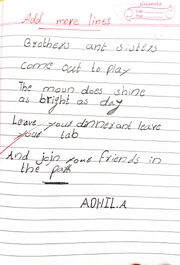 Add more lines
Brothers ant sisters
Come out to play
The moun does shine
as bright as day
Leave your dinner ant leave
your tab
And join your friends in
the park
ADHIL.A